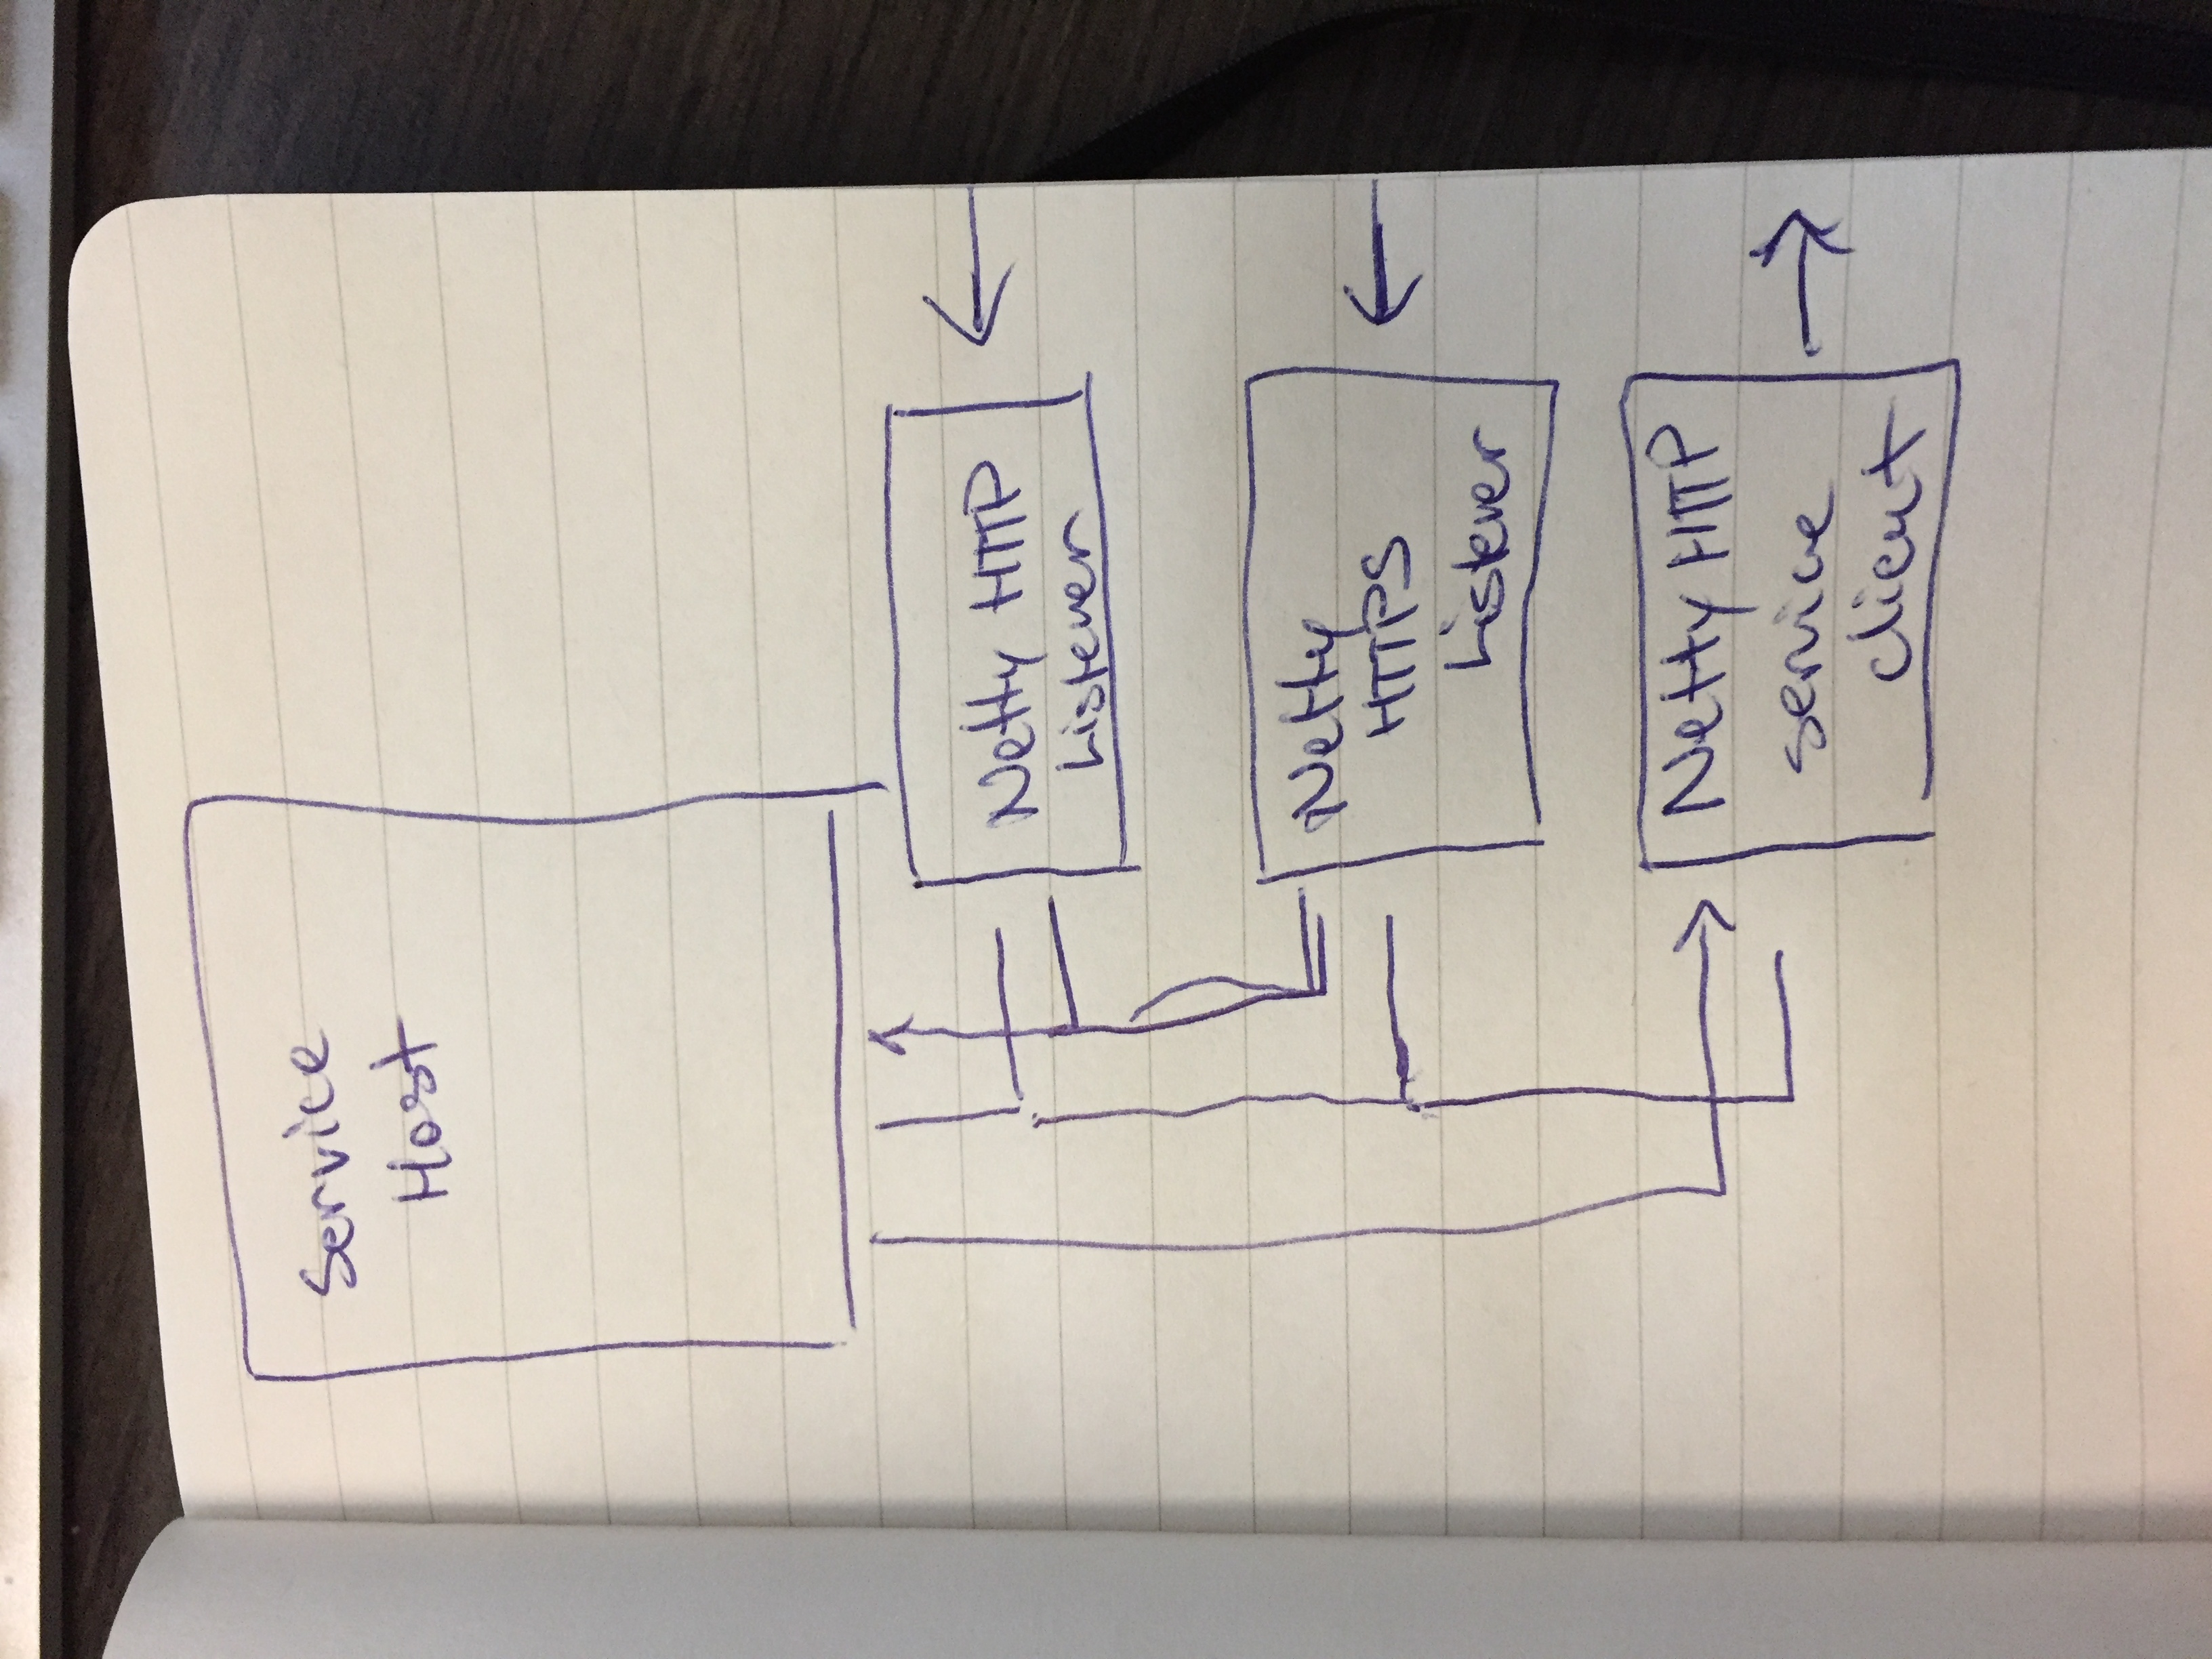 Service
Host
Netty HTTP
Listener
Netty
HTTPS
Listener
Netty HTTP
service
client